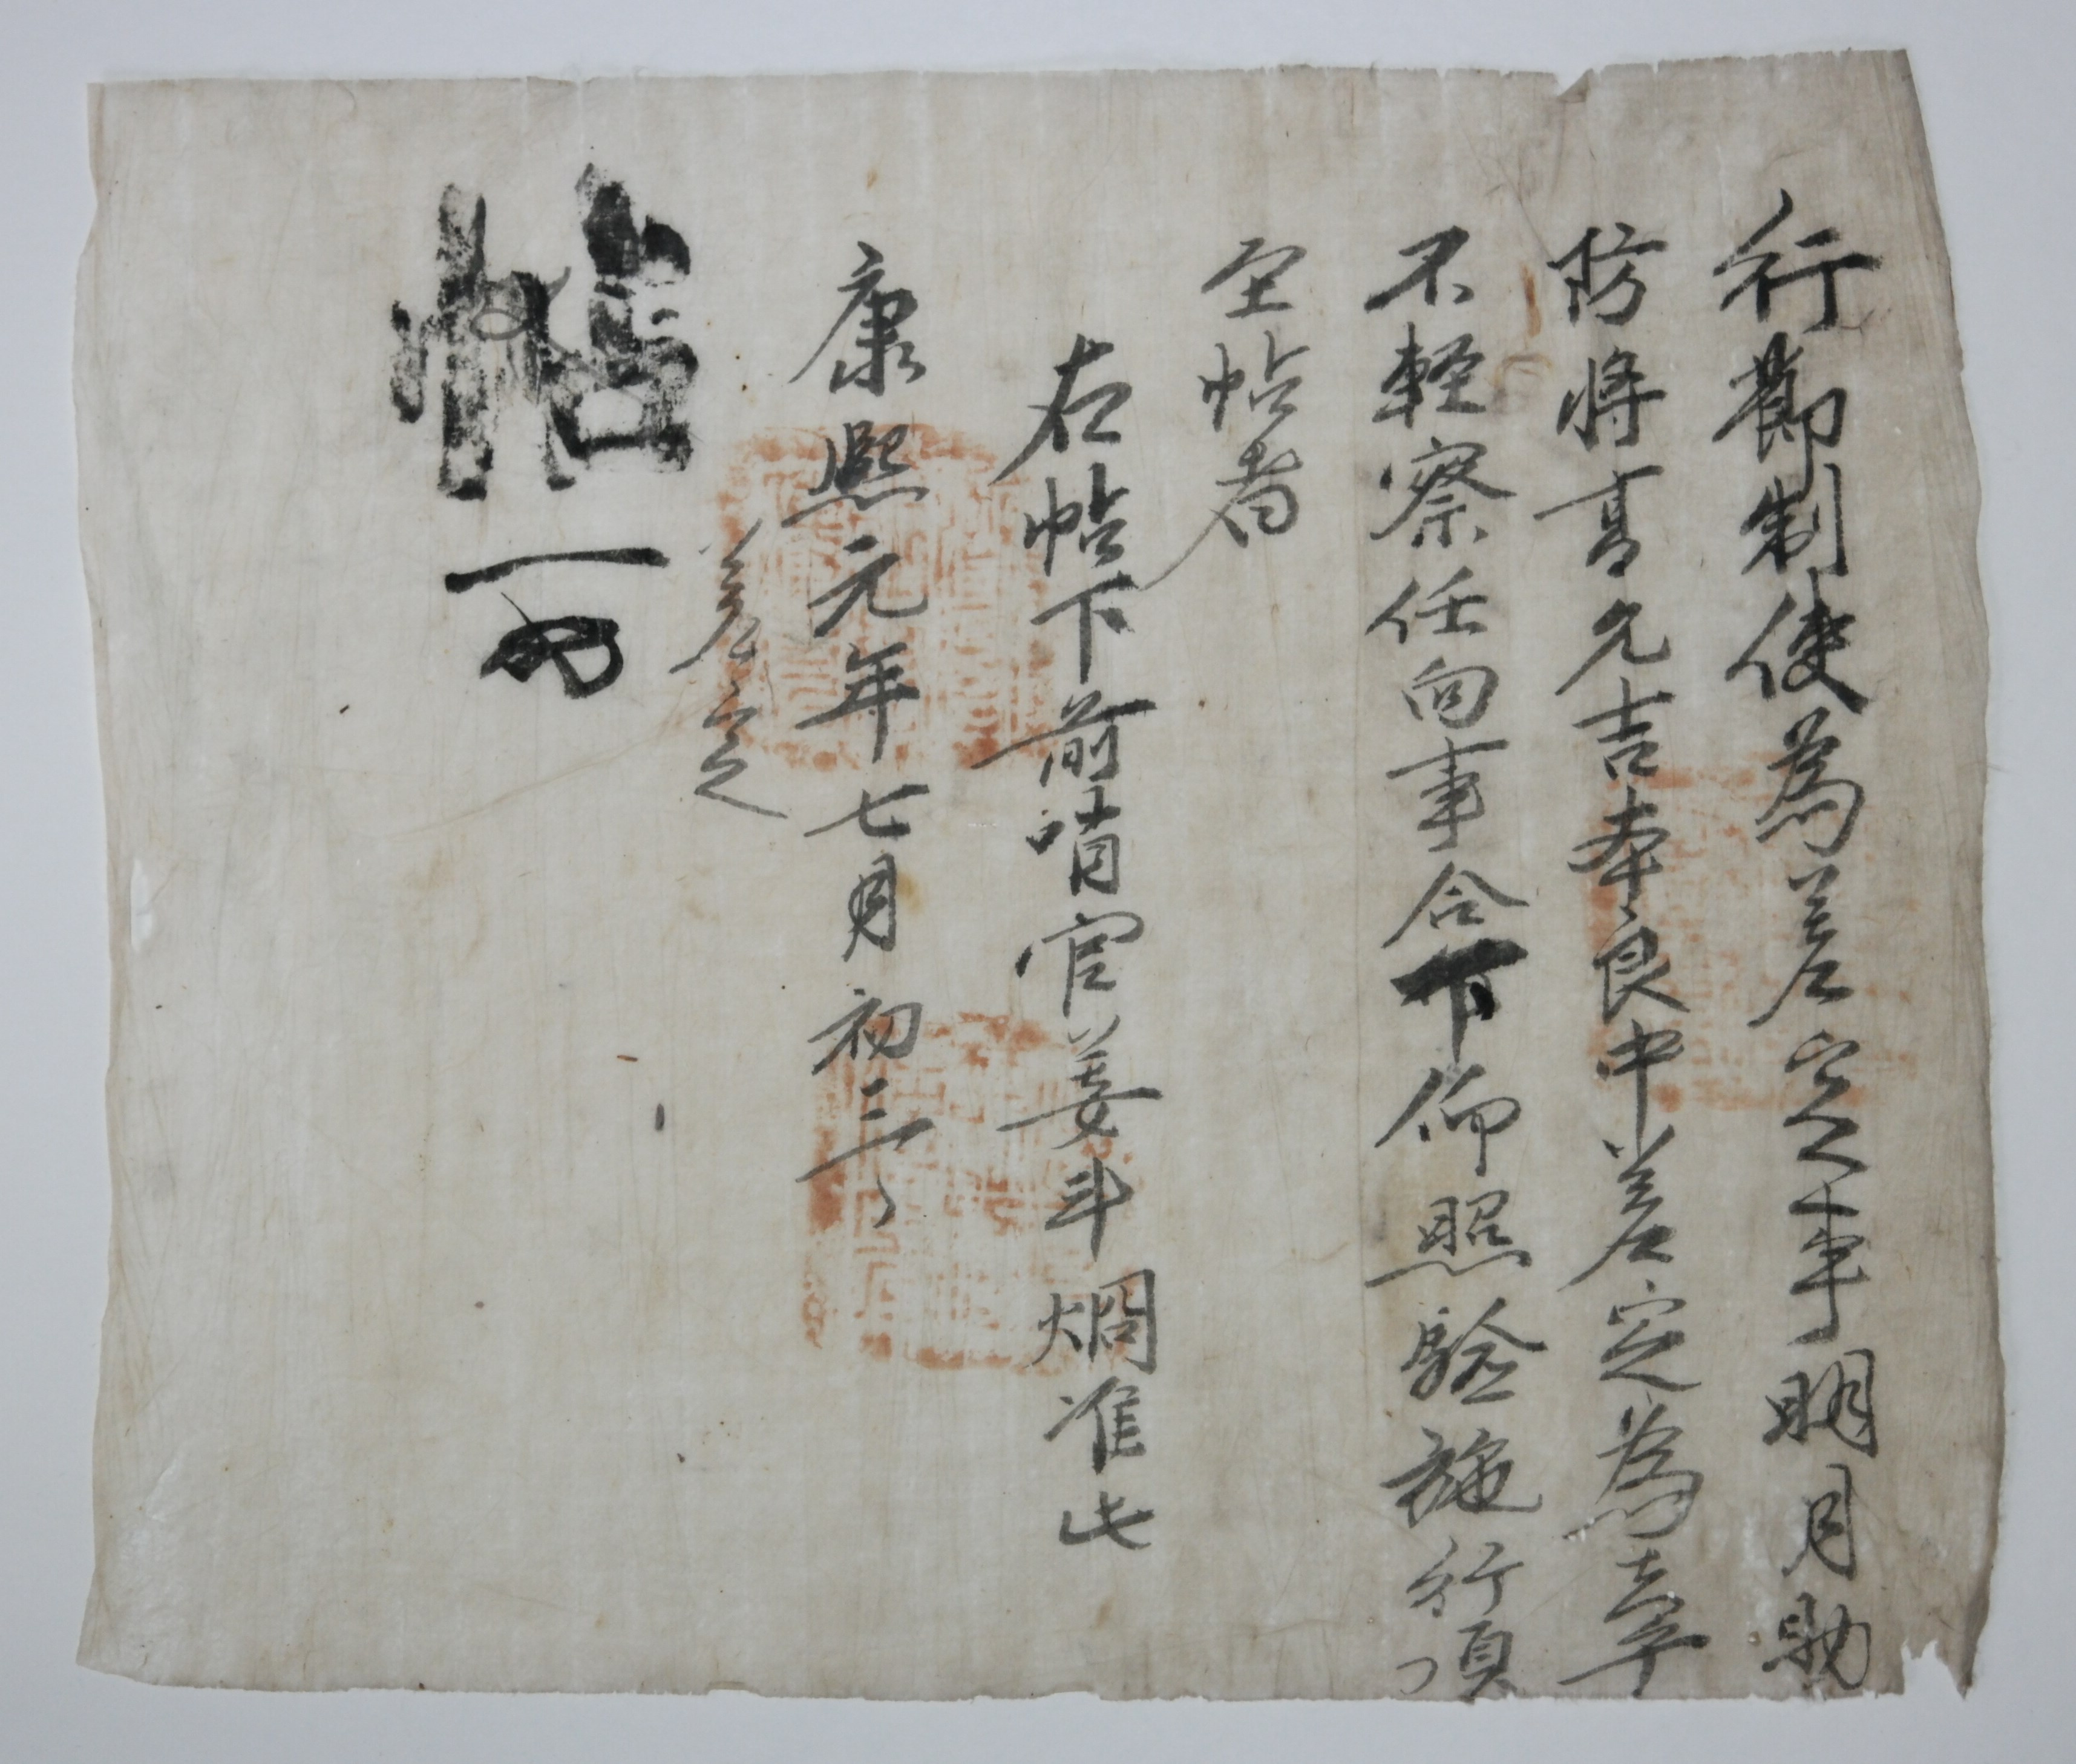 行節制使爲差定事明月助
防將高允吉奉良中差定爲去乎
不輕察任向事合下仰照驗施行須
至帖者
右帖下前哨官姜斗烱准此
康熙元年七月初三
差定
帖